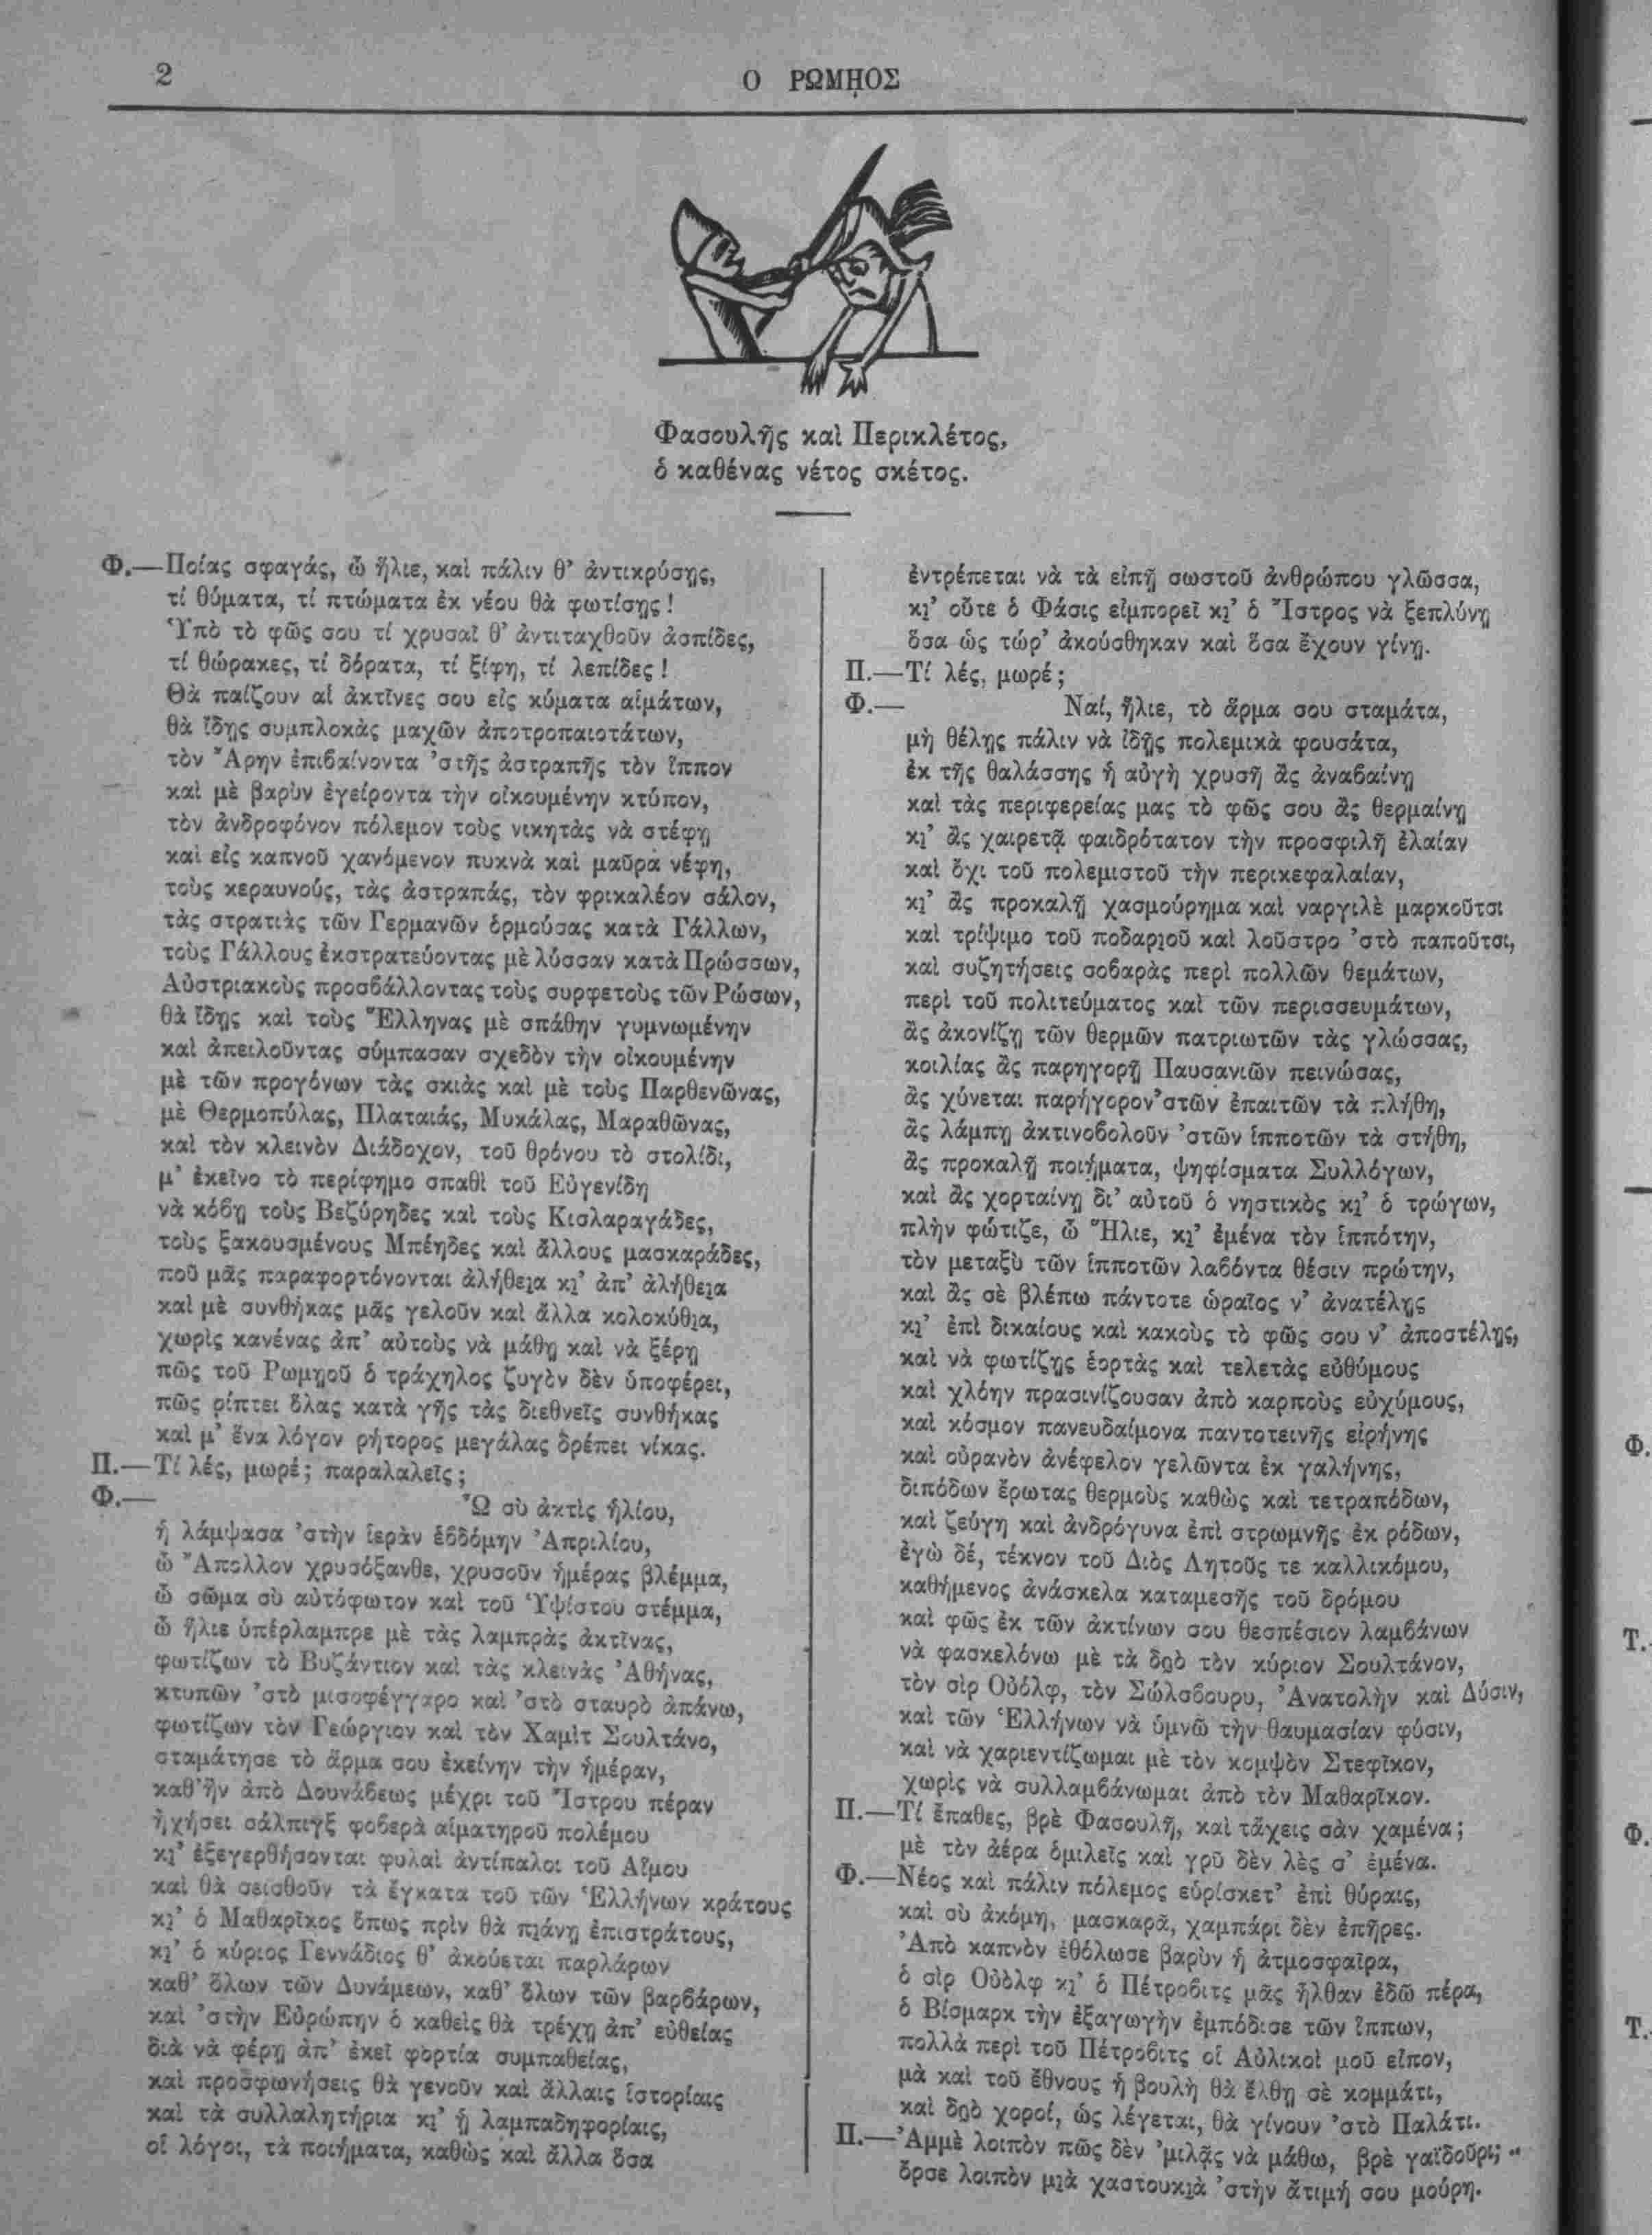 2
Ο ΡΩΜῌΟΣ
Φασουλῆς καὶ Περικλέτος,
ὁ καθένας νέτος σκέτος.
Φ.—Ποίας σφαγάς, ὦ ἥλιε, καὶ πάλιν θ' ἀντικρύσῃς,
τί θύματα, τί πτώματα ἐκ νέου θὰ φωτίσῃς!
Ὑπὸ τὸ φῶς σου τί χρυσαῖ θ' ἀντιταχθοῦν ἀσπίδες,
τί θώρακες, τί δόρατα, τί ξίφη, τί λεπίδες!
Θὰ παίζουν αἱ ἀκτῖνες σου εἰς κύματα αἱμάτων,
θὰ ἴδῃς συμπλοκὰς μαχῶν ἀποτροπαιοτάτων,
τὸν Ἄρην ἐπιβαίνοντα 'στῆς ἀστραπῆς τὸν ἵππον
καὶ μὲ βαρὺν ἐγείροντα τὴν οἰκουμένην κτύπον,
τὸν ἀνδροφόνον πόλεμον τοὺς νικητὰς νὰ στέφῃ
καὶ εἰς καπνοῦ χανόμενον πυκνὰ καὶ μαῦρα νέφη,
τοὺς κεραυνούς, τὰς ἀστραπάς, τὸν φρικαλέον σάλον,
τὰς στρατιὰς τῶν Γερμανῶν ὁρμούσας κατὰ Γάλλων,
τοὺς Γάλλους ἐκστρατεύοντας μὲ λύσσαν κατὰ Πρώσσων,
Αὐστριακοὺς προσβάλλοντας τοὺς συρφετοὺς τῶν Ρώσων,
θὰ ἴδῃς καὶ τοὺς Ἕλληνας μὲ σπάθην γυμνωμένην
καὶ ἀπειλοῦντας σύμπασαν σχεδὸν τὴν οἰκουμένην
μὲ τῶν προγόνων τὰς σκιὰς καὶ μὲ τοὺς Παρθενῶνας,
μὲ Θερμοπύλας, Πλαταιάς, Μυκάλας, Μαραθῶνας,
καὶ τὸν κλεινὸν Διάδοχον, τοῦ θρόνου τὸ στολίδι,
μ' ἐκεῖνο τὸ περίφημο σπαθὶ τοῦ Εὐγενίδη
νὰ κόβῃ τοὺς Βεζύρηδες καὶ τοὺς Κισλαραγάδες,
τοὺς ξακουσμένους Μπέηδες καὶ ἄλλους μασκαράδες,
ποῦ μᾶς παραφορτόνονται ἀλήθεια κι' ἀπ' ἀλήθεια
καὶ μὲ συνθήκας μᾶς γελοῦν καὶ ἄλλα κολοκύθια,
χωρὶς κανένας ἀπ' αὐτοὺς νὰ μάθῃ καὶ νὰ ξέρῃ
πῶς τοῦ Ρωμῃοῦ ὁ τράχηλος ζυγὸν δὲν ὑποφέρει,
πῶς ρίπτει ὅλας κατὰ γῆς τὰς διεθνεῖς συνθήκας
καὶ μ' ἕνα λόγον ρήτορος μεγάλας δρέπει νίκας.
Π.—Τί λές, μωρέ; παραλαλεῖς;
Φ.— Ὢ σὺ ἀκτὶς ἡλίου,
ἡ λάμψασα 'στὴν ἱερὰν ἑβδόμην Ἀπριλίου,
ὦ Ἄπολλον χρυσόξανθε, χρυσοῦν ἡμέρας βλέμμα,
ὦ σῶμα σὺ αὐτόφωτον καὶ τοῦ Ὑψίστου στέμμα,
ὦ ἥλιε ὑπέρλαμπρε μὲ τὰς λαμπρὰς ἀκτῖνας,
φωτίζων τὸ Βυζάντιον καὶ τὰς κλεινὰς Ἀθήνας,
κτυπῶν 'στὸ μισοφέγγαρο καὶ 'στὸ σταυρὸ ἀπάνω,
φωτίζων τὸν Γεώργιον καὶ τὸν Χαμὶτ Σουλτάνο,
σταμάτησε τὸ ἅρμα σου ἐκείνην τὴν ἡμέραν,
καθ' ἣν ἀπὸ Δουνάβεως μέχρι τοῦ Ἴστρου πέραν
ἠχήσει σάλπιγξ φοβερὰ αἱματηροῦ πολέμου
κι' ἐξεγερθήσονται φυλαὶ ἀντίπαλοι τοῦ Αἵμου
καὶ θὰ σεισθοῦν τὰ ἔγκατα τοῦ τῶν Ἑλλήνων κράτους
κι' ὁ Μαθαρῖκος ὅπως πρὶν θὰ πιάνῃ ἐπιστράτους,
κι' ὁ κύριος Γεννάδιος θ' ἀκούεται παρλάρων
καθ' ὅλων τῶν Δυνάμεων, καθ' ὅλων τῶν βαρβάρων,
καὶ 'στὴν Εὐρώπην ὁ καθεὶς θὰ τρέχῃ ἀπ' εὐθείας
διὰ νὰ φέρῃ ἀπ' ἐκεῖ φορτία συμπαθείας,
καὶ προσφωνήσεις θὰ γενοῦν καὶ ἄλλαις ἱστορίαις
καὶ τὰ συλλαλητήρια κι' ᾑ λαμπαδηφορίαις,
οἱ λόγοι, τὰ ποιήματα, καθὼς καὶ ἄλλα ὅσα
ἐντρέπεται νὰ τὰ εἰπῇ σωστοῦ ἀνθρώπου γλῶσσα,
κι' οὔτε ὁ Φάσις εἰμπορεῖ κι' ὁ Ἴστρος νὰ ξεπλύνῃ
ὅσα ὡς τώρ' ἀκούσθηκαν καὶ ὅσα ἔχουν γίνῃ.
Π.—Τί λές, μωρέ;
Φ.— Ναί, ἥλιε, τὸ ἅρμα σου σταμάτα,
μὴ θέλῃς πάλιν νὰ ἰδῇς πολεμικὰ φουσάτα,
ἐκ τῆς θαλάσσης ἡ αὐγὴ χρυσῆ ἂς ἀναβαίνῃ
καὶ τὰς περιφερείας μας τὸ φῶς σου ἂς θερμαίνῃ
κι' ἂς χαιρετᾷ φαιδρότατον τὴν προσφιλῆ ἐλαίαν
καὶ ὄχι τοῦ πολεμιστοῦ τὴν περικεφαλαίαν,
κι' ἂς προκαλῇ χασμούρημα καὶ ναργιλὲ μαρκοῦτσι
καὶ τρίψιμο τοῦ ποδαριοῦ καὶ λοῦστρο 'στὸ παποῦτσι,
καὶ συζητήσεις σοβαρὰς περὶ πολλῶν θεμάτων,
περὶ τοῦ πολιτεύματος καὶ τῶν περισσευμάτων,
ἂς ἀκονίζῃ τῶν θερμῶν πατριωτῶν τὰς γλώσσας,
κοιλίας ἂς παρηγορῇ Παυσανιῶν πεινώσας,
ἂς χύνεται παρήγορον 'στῶν ἐπαιτῶν τὰ πλήθη,
ἂς λάμπῃ ἀκτινοβολοῦν 'στῶν ἱπποτῶν τὰ στήθη,
ἂς προκαλῇ ποιήματα, ψηφίσματα Συλλόγων,
καὶ ἂς χορταίνῃ δι' αὐτοῦ ὁ νηστικὸς κι' ὁ τρώγων,
πλὴν φώτιζε, ὦ Ἥλιε, κι' ἐμένα τὸν ἱππότην,
τὸν μεταξὺ τῶν ἱπποτῶν λαβόντα θέσιν πρώτην,
καὶ ἂς σὲ βλέπω πάντοτε ὡραῖος ν' ἀνατέλῃς
κι' ἐπὶ δικαίους καὶ κακοὺς τὸ φῶς σου ν' ἀποστέλῃς,
καὶ νὰ φωτίζῃς ἑορτὰς καὶ τελετὰς εὐθύμους
καὶ χλόην πρασινίζουσαν ἀπὸ καρποὺς εὐχύμους,
καὶ κόσμον πανευδαίμονα παντοτεινῆς εἰρήνης
καὶ οὐρανὸν ἀνέφελον γελῶντα ἐκ γαλήνης,
διπόδων ἔρωτας θερμοὺς καθὼς καὶ τετραπόδων,
καὶ ζεύγη καὶ ἀνδρόγυνα ἐπὶ στρωμνῆς ἐκ ρόδων,
ἐγὼ δέ, τέκνον τοῦ Διὸς Λητοῦς τε καλλικόμου,
καθήμενος ἀνάσκελα καταμεσῆς τοῦ δρόμου
καὶ φῶς ἐκ τῶν ἀκτίνων σου θεσπέσιον λαμβάνων
νὰ φασκελόνω μὲ τὰ δῃὸ τὸν κύριον Σουλτάνον,
τὸν σὶρ Οὐόλφ, τὸν Σώλσβουρυ, Ἀνατολὴν καὶ Δύσιν,
καὶ τῶν Ἑλλήνων νὰ ὑμνῶ τὴν θαυμασίαν φύσιν,
καὶ νὰ χαριεντίζωμαι μὲ τὸν κομψὸν Στεφῖκον,
χωρὶς νὰ συλλαμβάνωμαι ἀπὸ τὸν Μαθαρῖκον.
Π.—Τί ἔπαθες, βρὲ Φασουλῆ, καὶ τἄχεις σὰν χαμένα;
μὲ τὸν ἀέρα ὁμιλεῖς καὶ γρῦ δὲν λὲς σ' ἐμένα.
Φ.—Νέος καὶ πάλιν πόλεμος εὑρίσκετ' ἐπὶ θύραις,
καὶ σὺ ἀκόμη, μασκαρᾶ, χαμπάρι δὲν ἐπῆρες.
Ἀπὸ καπνὸν ἐθόλωσε βαρὺν ἡ ἀτμοσφαῖρα,
ὁ σὶρ Οὐὸλφ κι' ὁ Πέτροβιτς μᾶς ἦλθαν ἐδῶ πέρα,
ὁ Βίσμαρκ τὴν ἐξαγωγὴν ἐμπόδισε τῶν ἵππων,
πολλὰ περὶ τοῦ Πέτροβιτς οἱ Αὐλικοὶ μοῦ εἶπον,
μὰ καὶ τοῦ ἔθνους ἡ βουλὴ θὰ ἔλθῃ σὲ κομμάτι,
καὶ δῃὸ χοροί, ὡς λέγεται, θὰ γίνουν 'στὸ Παλάτι.
Π.—Ἀμμὲ λοιπὸν πῶς δὲν 'μιλᾷς νὰ μάθω, βρὲ γαϊδοῦρι;
ὅρσε λοιπὸν μιὰ χαστουκιὰ 'στὴν ἄτιμή σου μούρη.
Φ.
Τ.
Φ.
Τ.